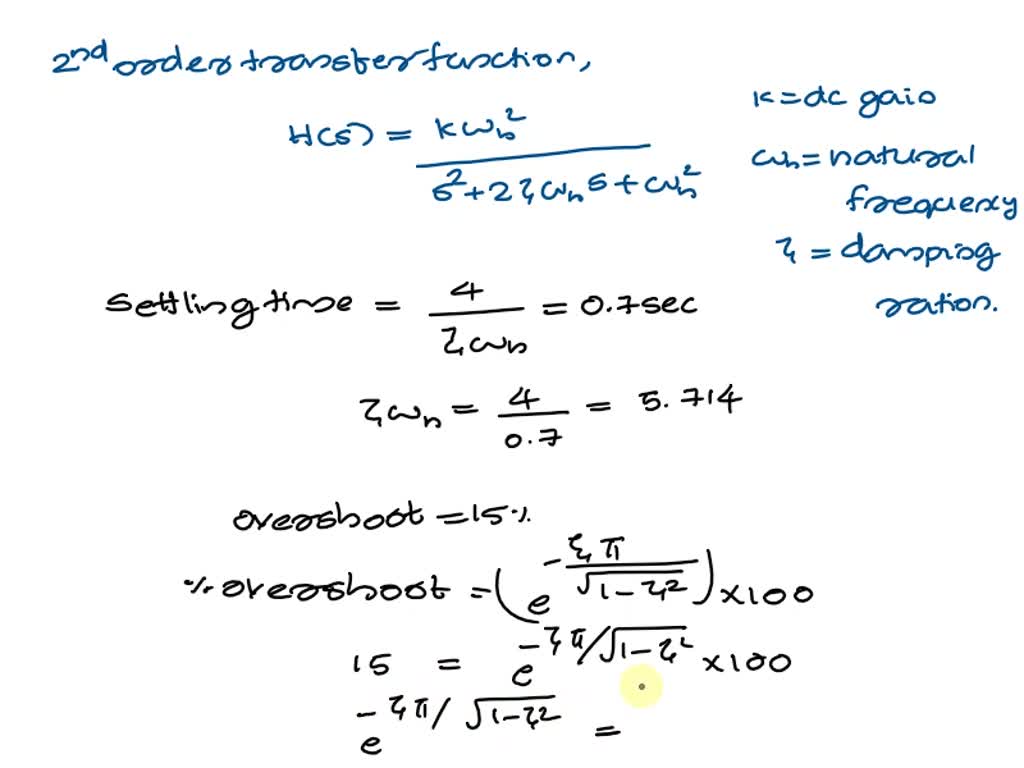 2nd order transfer function,
H(s) = Kωn²/(s²+2ζωn s+ωn²)
K = dc gain
ωn = natural
frequency
ζ = damping
ration.
Settling time = 4/(ζωn) = 0.7sec
ζωn = 4/0.7 = 5.714
overshoot = 15%
% overshoot = (e^(-ζπ/√(1-ζ²))) ×100
15 = e^(-ζπ/√(1-ζ²)) ×100
e^(-ζπ/√(1-ζ²)) =